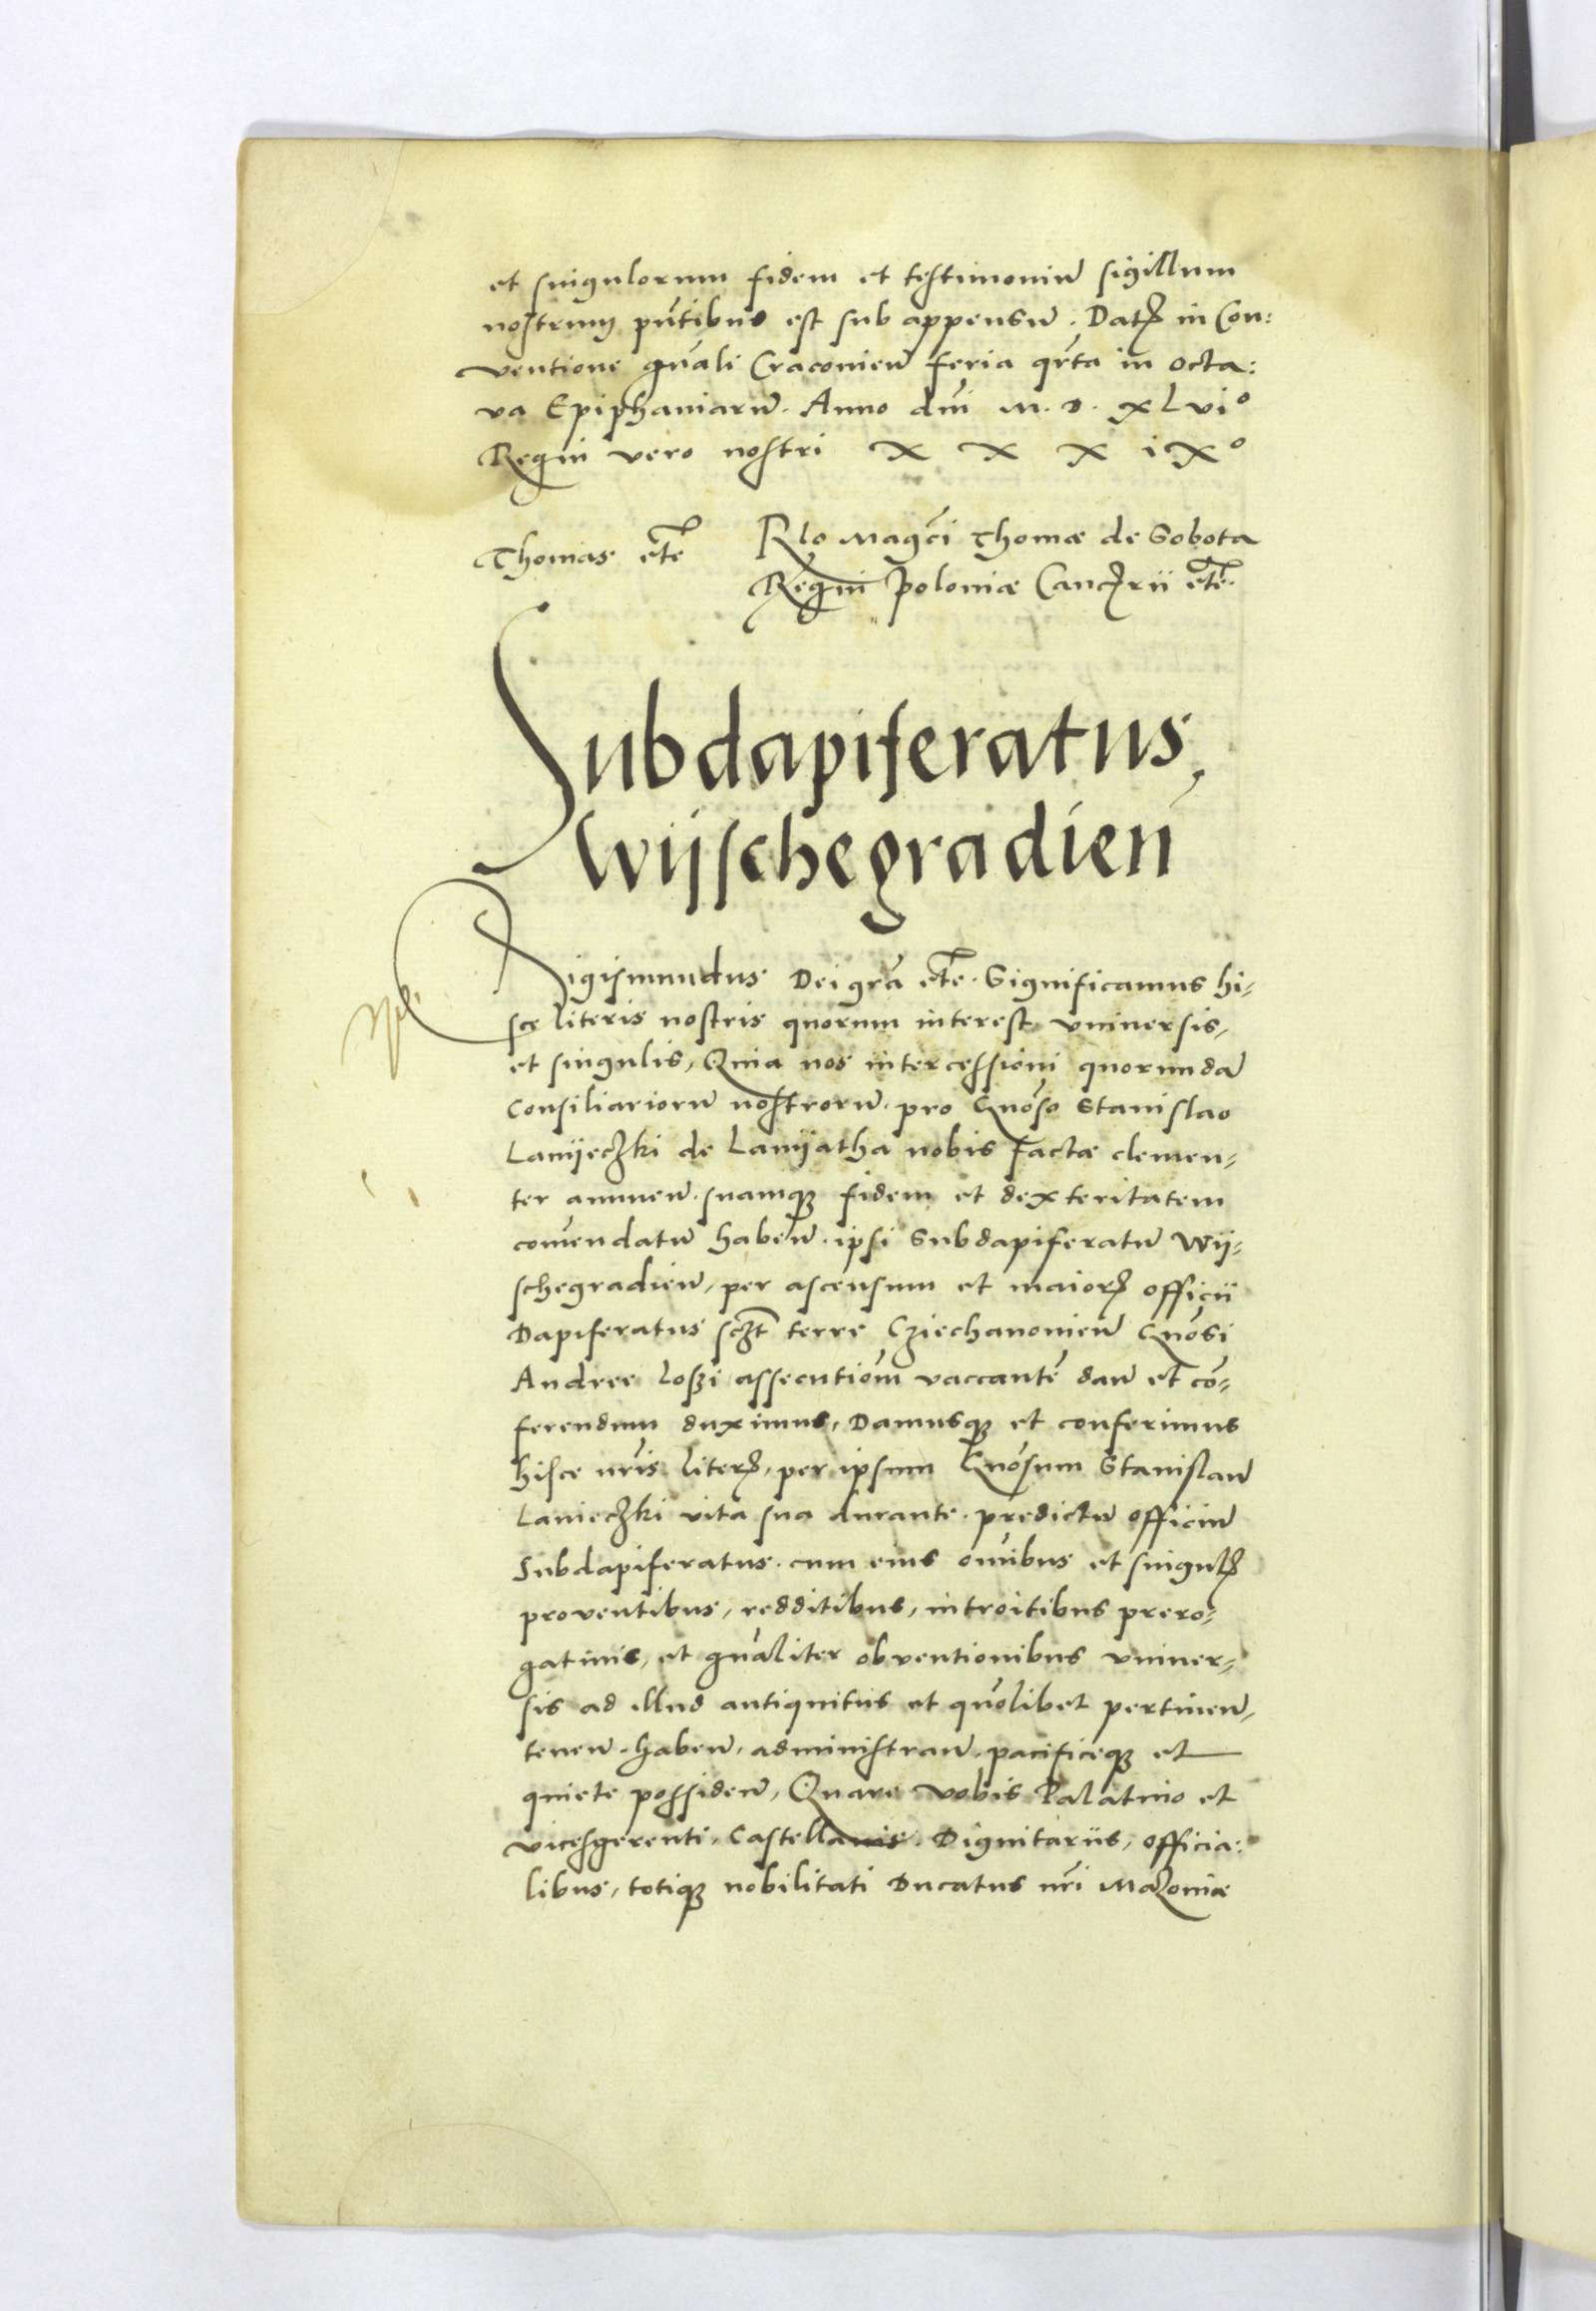 et singulorum fidem et testimoniū sigillum
nostrum pn̄tibus est sub appensū. Datꝭ in Con:
ventione gn̄ali Cracovien̄ feria qr̄ta in octa:
va Epiphaniarū. Anno dn̄i M.D.XLvi°
Regni vero nostri X X X iX°
Thomas etc̄ Rlo Maḡci Thomæ de Sobota
Regni Poloniæ Cancꝭrii etc̄.
Subdapiferatus,
Wijschegradien̄
Sigismundus Dei gr̄a etc̄. Significamus hi-
sce literis nostris quorum interest vniversis,
et singulis, Quia nos intercessioni quorundā
Consiliariorū nostrorū. pro Gn̄oso Stanislao
Lanijeczki de Lanijatha nobis factæ clemen-
ter annuen̄. suamqꝫ fidem et dexteritatem
com̄endatū haben̄. ipsi Subdapiferatū Wij-
schegradien̄, per ascensum et maiorꝭ officii
Dapiferatus sczt̄ terre Cziechanovien̄ Gn̄osi
Andree Loszi assecutiōm vaccantē dan̄ et cō-
ferendum duximus, Damusqꝫ et conferimus
hisce nr̄is literꝭ, per ipsum Gn̄osum Stanislaū
Lanieczki vita sua durante. predictū officiū
Subdapiferatus. cum eius om̄ibus et singulꝭ
proventibus, redditibus, introitibus prero-
gativis, et gn̄aliter obventionibus vniver-
sis ad illud antiquitus et quōlibet pertinen̄,
tenen̄. haben̄, administran̄. pacificeqꝫ et
quiete possiden̄, Quare vobis Palatino et
vicesgerenti, Castellanis. Dignitariis, officia:
libus, totiqꝫ nobilitati Ducatus nr̄i Mazoviæ